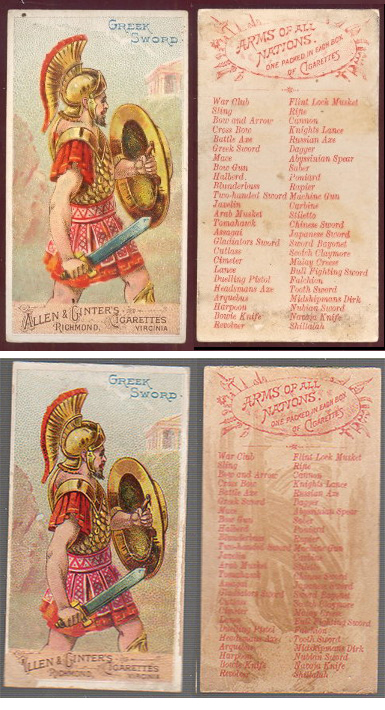 GREEK
SWORD.
ALLEN & GINTER'S CIGARETTES
RICHMOND, VIRGINIA
ARMS OF ALL
NATIONS.
ONE PACKED IN EACH BOX
OF CIGARETTES
War Club Flint Lock Musket
Sling Rifle
Bow and Arrow Cannon
Cross Bow Knights Lance
Battle Axe Russian Axe
Greek Sword Dagger
Mace Abyssinian Spear
Bow Gun Saber
Halberd Poniard
Blunderbuss Rapier
Two-handed Sword Machine Gun
Javelin Carbine
Arab Musket Stiletto
Tomahawk Chinese Sword
Assagai Japanese Sword
Gladiators Sword Sword Bayonet
Cutlass Scotch Claymore
Cimeter Malay Creese
Lance Bull Fighting Sword
Duelling Pistol Falchion
Headsmans Axe Tooth Sword
Arquebus Midshipmans Dirk
Harpoon Nubian Sword
Bowie Knife Navaja Knife
Revolver Shillalah
GREEK
SWORD.
ALLEN & GINTER'S CIGARETTES
RICHMOND, VIRGINIA
ARMS OF ALL
NATIONS.
ONE PACKED IN EACH BOX
OF CIGARETTES
War Club Flint Lock Musket
Sling Rifle
Bow and Arrow Cannon
Cross Bow Knights Lance
Battle Axe Russian Axe
Greek Sword Dagger
Mace Abyssinian Spear
Bow Gun Saber
Halberd Poniard
Blunderbuss Rapier
Two-handed Sword Machine Gun
Arab Musket Stiletto
Tomahawk Chinese Sword
Gladiators Sword Sword Bayonet
Bull Fighting Sword
Falchion
Headsmans Axe Tooth Sword
Arquebus Midshipmans Dirk
Harpoon Nubian Sword
Bowie Knife Navaja Knife
Revolver Shillalah